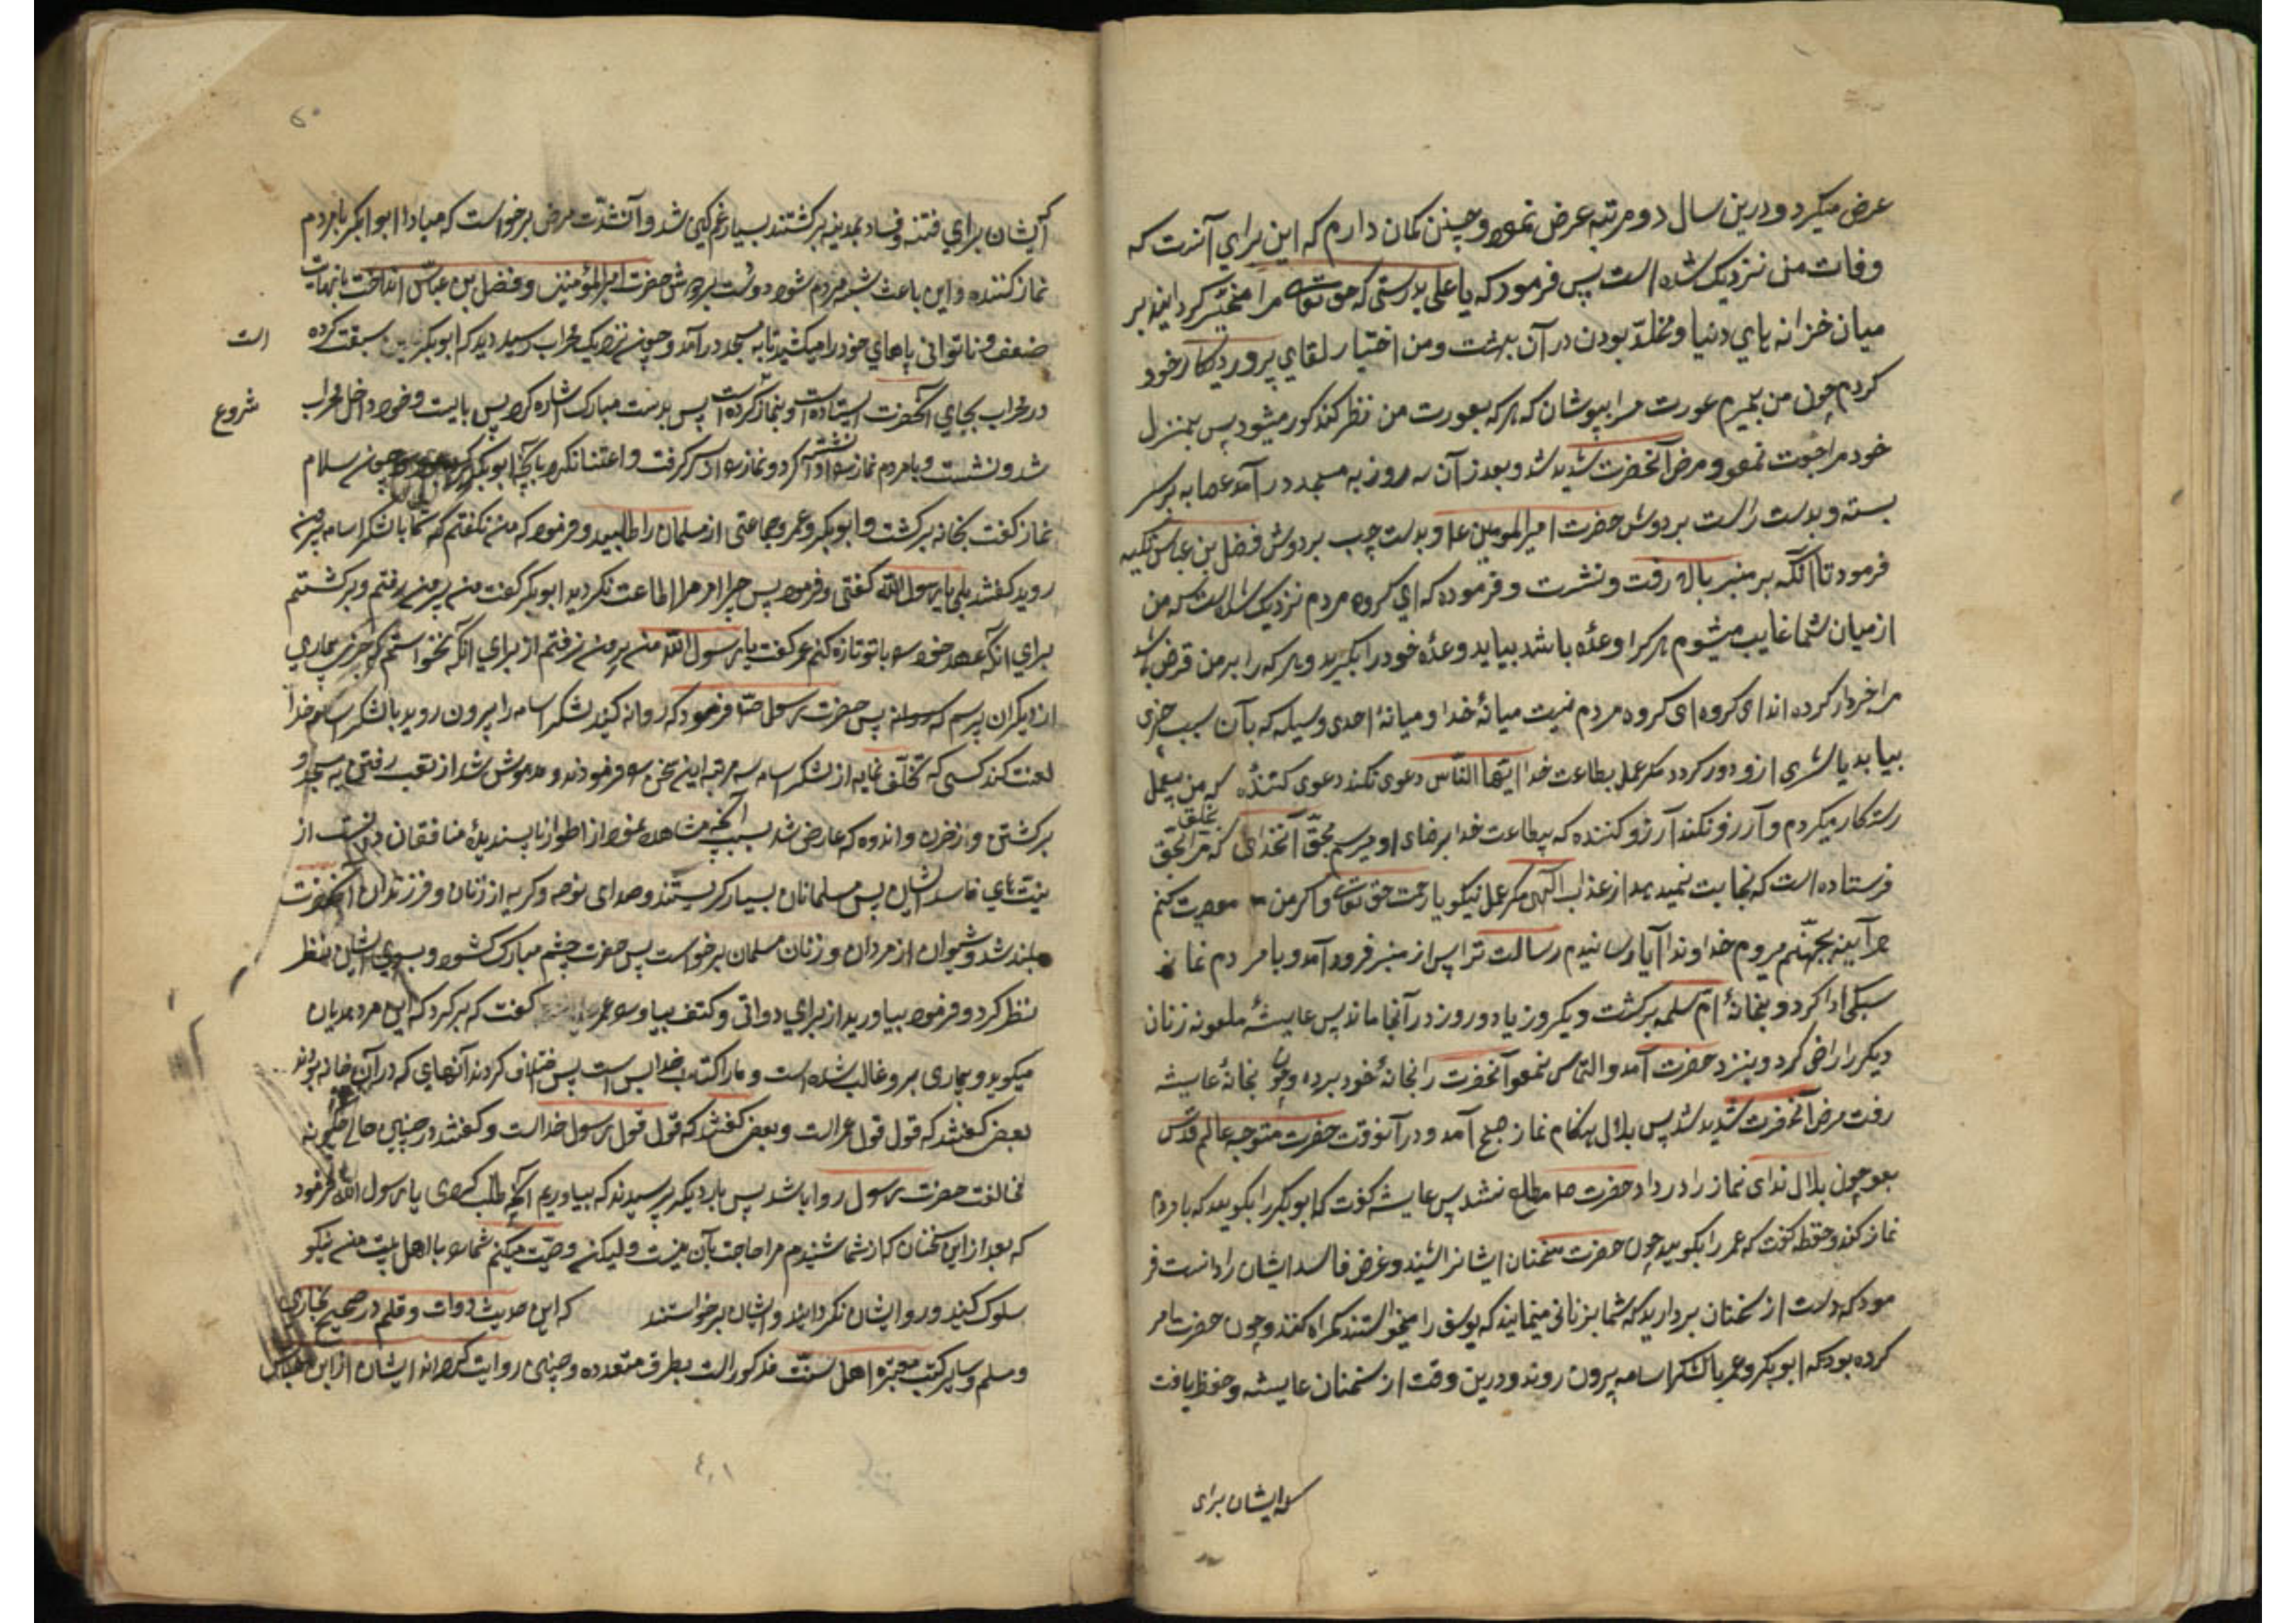 عرض میکرد و درین سال دو مرتبه عرض نمود و چنین کمان دارم که این برای آنست که
وفات من نزدیک شده است پس فرمود که یا علی بدرستی که حق تعالی مرا مخیّر کردانید بر
میان خزانه های دنیا و مخلّد بودن در آن بهشت و من اختیار لقای پروردکار خود
کردم چون من بمیرم عورت مرا بپوشان که هرکه بعورت من نظر کند کور میشود پس بمنزل
خود مراجعت نمود و مرض آنحضرت شدید شد و بعد از آن سه روز به مسجد در آمد عصابه بر سر
بسته و بدست راست بر دوش حضرت امیرالمومنین ع و بدست چپ بر دوش فضل بن عباس تکیه
فرمود تا آنکه بر منبر بالا رفت و نشست و فرموده که ای کروه مردم نزدیک شده است که من
از میان شما غایب میشوم هرکرا وعدّه باشد بیاید وعدّه خود را بکیرد و هرکه را بر من قرض باشد
مرا خبردار کرده اند ای کروه ای کروه مردم نیست میانۀ خدا و میانۀ احدی وسیله که بآن سبب چیزی
بیابد یا شری از و دور کردد مکر عمل بطاعت خدا ایتها النّاس دعوی نکند دعوی کننده که من بعمل
رستکار میکردم و آرزو نکند آرزو کننده که بیطاعت خدا برضای او میرسم بحقّ آنخدای که مرا بحق بخلق
فرستاده است که نجات نمیدهد از عذاب الهی مکر عمل نیکو با رحمت حق تعالی و اکر من معصیت کنم
هر آینه بجهنّم میروم خداوندا آیا رسانیدم رسالت ترا پس از منبر فرود آمد و با مردم نماز
سبکی ادا کرد و بخانۀ امّ سلمه برکشت و یکروز یا دو روز در آنجا ماند پس عایشۀ ملعونه زنان
دیکر را راضی کرد و بنزد حضرت آمد و التماس نمود آنحضرت را بخانۀ خود برد و چون بخانۀ عایشه
رفت مرض آنحضرت شدید شد پس بلال هنکام نماز صبح آمد و در آنوقت حضرت متوجه عالم قدس
بود چون بلال ندای نماز را در داد حضرت ص مطلع نشد پس عایشه کفت که ابوبکر را بکویید که با مردم
نماز کند و حفظه کفت که عمر را بکویید چون حضرت سخنان ایشانرا شنید و غرض فاسد ایشان را دانست فر
مود که دست از سخنان بردارید که شما بزنانی میمانید که یوسف را میخواستند کمراه کنند و چون حضرت امر
کرده بود که ابوبکر و عمر با لشکر اسامه بیرون روند و درین وقت از سخنان عایشه و حفظ یافت
که ایشان برای
۶۰
که ایشان برای فتنه و فساد بمدینه برکشتند بسیار غمکین شد و با آنشدّت مرض برخواست که مبادا ابوابکر با مردم
نماز کننده و این باعث شبه مردم شود و دست بر دوش حضرت امیرالمؤمنین و فضل بن عباس انداخت با نهایت
ضعف و ناتوانی پاهای خود را میکشید تا به مسجد در آمد و چون نزدیک محراب رسید دید که ابوبکر سبقت کرده
است
در محراب بجای آنحضرت ایستاده است و نماز کرده است پس بدست مبارک اشاره کرد پس بایست و خود داخل محراب
شروع
شد و نشست و با مردم نماز نشسته ادا کرد و نماز از سر کرفت و اعتنا نکرد بآنچه ابوبکر کرده چون سلام
نماز کفت بخانه برکشت و ابوبکر و عمر و جماعتی از مسلمان را طلبید و فرمود که من نکفتم که شما با لشکر اسامه بیرون
روید کفتند بلی یا رسول الله کفتی و فرمود پس چرا امر مرا اطاعت نکردید ابوبکر کفت من بیرون رفتم و برکشتم
برای آنکه عهد خود را با تو تازه کنم عمر کفت یا رسول الله من بیرون نرفتم از برای آنکه نخواستم که خبر بیماری
از دیکران پرسم پس حضرت رسول ص فرمود که روانه کنید لشکر اسامه را بیرون روید با لشکر اسامه خدا
لعنت کند کسی که تخلّف نماید از لشکر اسامه سه مرتبه این سخن را فرمودند و مدهوش شد از تعب رفتن به مسجد و
برکشتن و از حزن و اندوه که عارض شد بسبب آنچه مشاهده نمود از اطوار ناپسندیدۀ منافقان و دانست از
نیّت های فاسد ایشان پس مسلمانان بسیار کریستند و صدای نوحه و کریه از زنان و فرزندان آنحضرت
بلند شد و شیون از مردان و زنان مسلمان برخواست پس حضرت چشم مبارک کشود و بسوی ایشان نظر
نظر کرد و فرمود بیاورید از برای دواتی و کتف بیاورید عمر کفت که برکرد که این مرد هذیان
میکوید و بیماری برو غالب شده است و ما را کتاب خدا بس است پس اختلاف کردند آنهای که در آن خانه بودند
بعضی کفتند که قول قول عمر است و بعضی کفتند که قول قول رسول خداست و کفتند در چنین حالی چکونه
مخالفت حضرت رسول روا باشد پس بار دیکر پرسیدند که بیاوریم آنچه طلب کردی یا رسول الله فرمود
که بعد از این سخنان که از شما شنیدم مرا حاجت بآن نیست و لیکن وصیّت میکنم شما را با اهل بیت من نیکو
سلوک کنید و رو از ایشان نکردانید و ایشان برخواستند که این حدیث دوات و قلم در صحیح بخاری
و مسلم و سایر کتب معتبره اهل سنّت مذکور است بطرق متعدده و چنین روایت کرده اند ایشان از ابن عباس